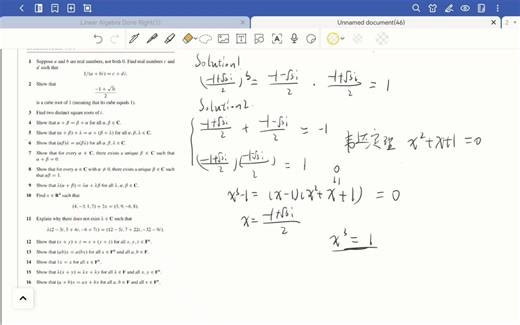 Linear Algebra Done Right(1)
Unnamed document(46)
1 Suppose a and b are real numbers, not both 0. Find real numbers c and
d such that
1/(a + bi) = c + di.
2 Show that
-1 + √3i
2
is a cube root of 1 (meaning that its cube equals 1).
3 Find two distinct square roots of i.
4 Show that α + β = β + α for all α, β ∈ C.
5 Show that (α + β) + λ = α + (β + λ) for all α, β, λ ∈ C.
6 Show that (αβ)λ = α(βλ) for all α, β, λ ∈ C.
7 Show that for every α ∈ C, there exists a unique β ∈ C such that
α + β = 0.
8 Show that for every α ∈ C with α ≠ 0, there exists a unique β ∈ C such
that αβ = 1.
9 Show that λ(α + β) = λα + λβ for all λ, α, β ∈ C.
10 Find x ∈ R⁴ such that
(4, -3, 1, 7) + 2x = (5, 9, -6, 8).
11 Explain why there does not exist λ ∈ C such that
λ(2 - 3i, 5 + 4i, -6 + 7i) = (12 - 5i, 7 + 22i, -32 - 9i).
12 Show that (x + y) + z = x + (y + z) for all x, y, z ∈ Fⁿ.
13 Show that (ab)x = a(bx) for all x ∈ Fⁿ and all a, b ∈ F.
14 Show that 1x = x for all x ∈ Fⁿ.
15 Show that λ(x + y) = λx + λy for all λ ∈ F and all x, y ∈ Fⁿ.
16 Show that (a + b)x = ax + bx for all a, b ∈ F and all x ∈ Fⁿ.
Solution1
(-1+√3i / 2)³ = -1-√3i / 2 · -1+√3i / 2 = 1
Solution2.
-1+√3i / 2 + -1-√3i / 2 = -1
韦达定理 x²+x+1=0
(-1+√3i / 2)(-1-√3i / 2) = 1
0
x³-1 = (x-1)(x²+x+1) = 0
x = -1+√3i / 2
x³ = 1